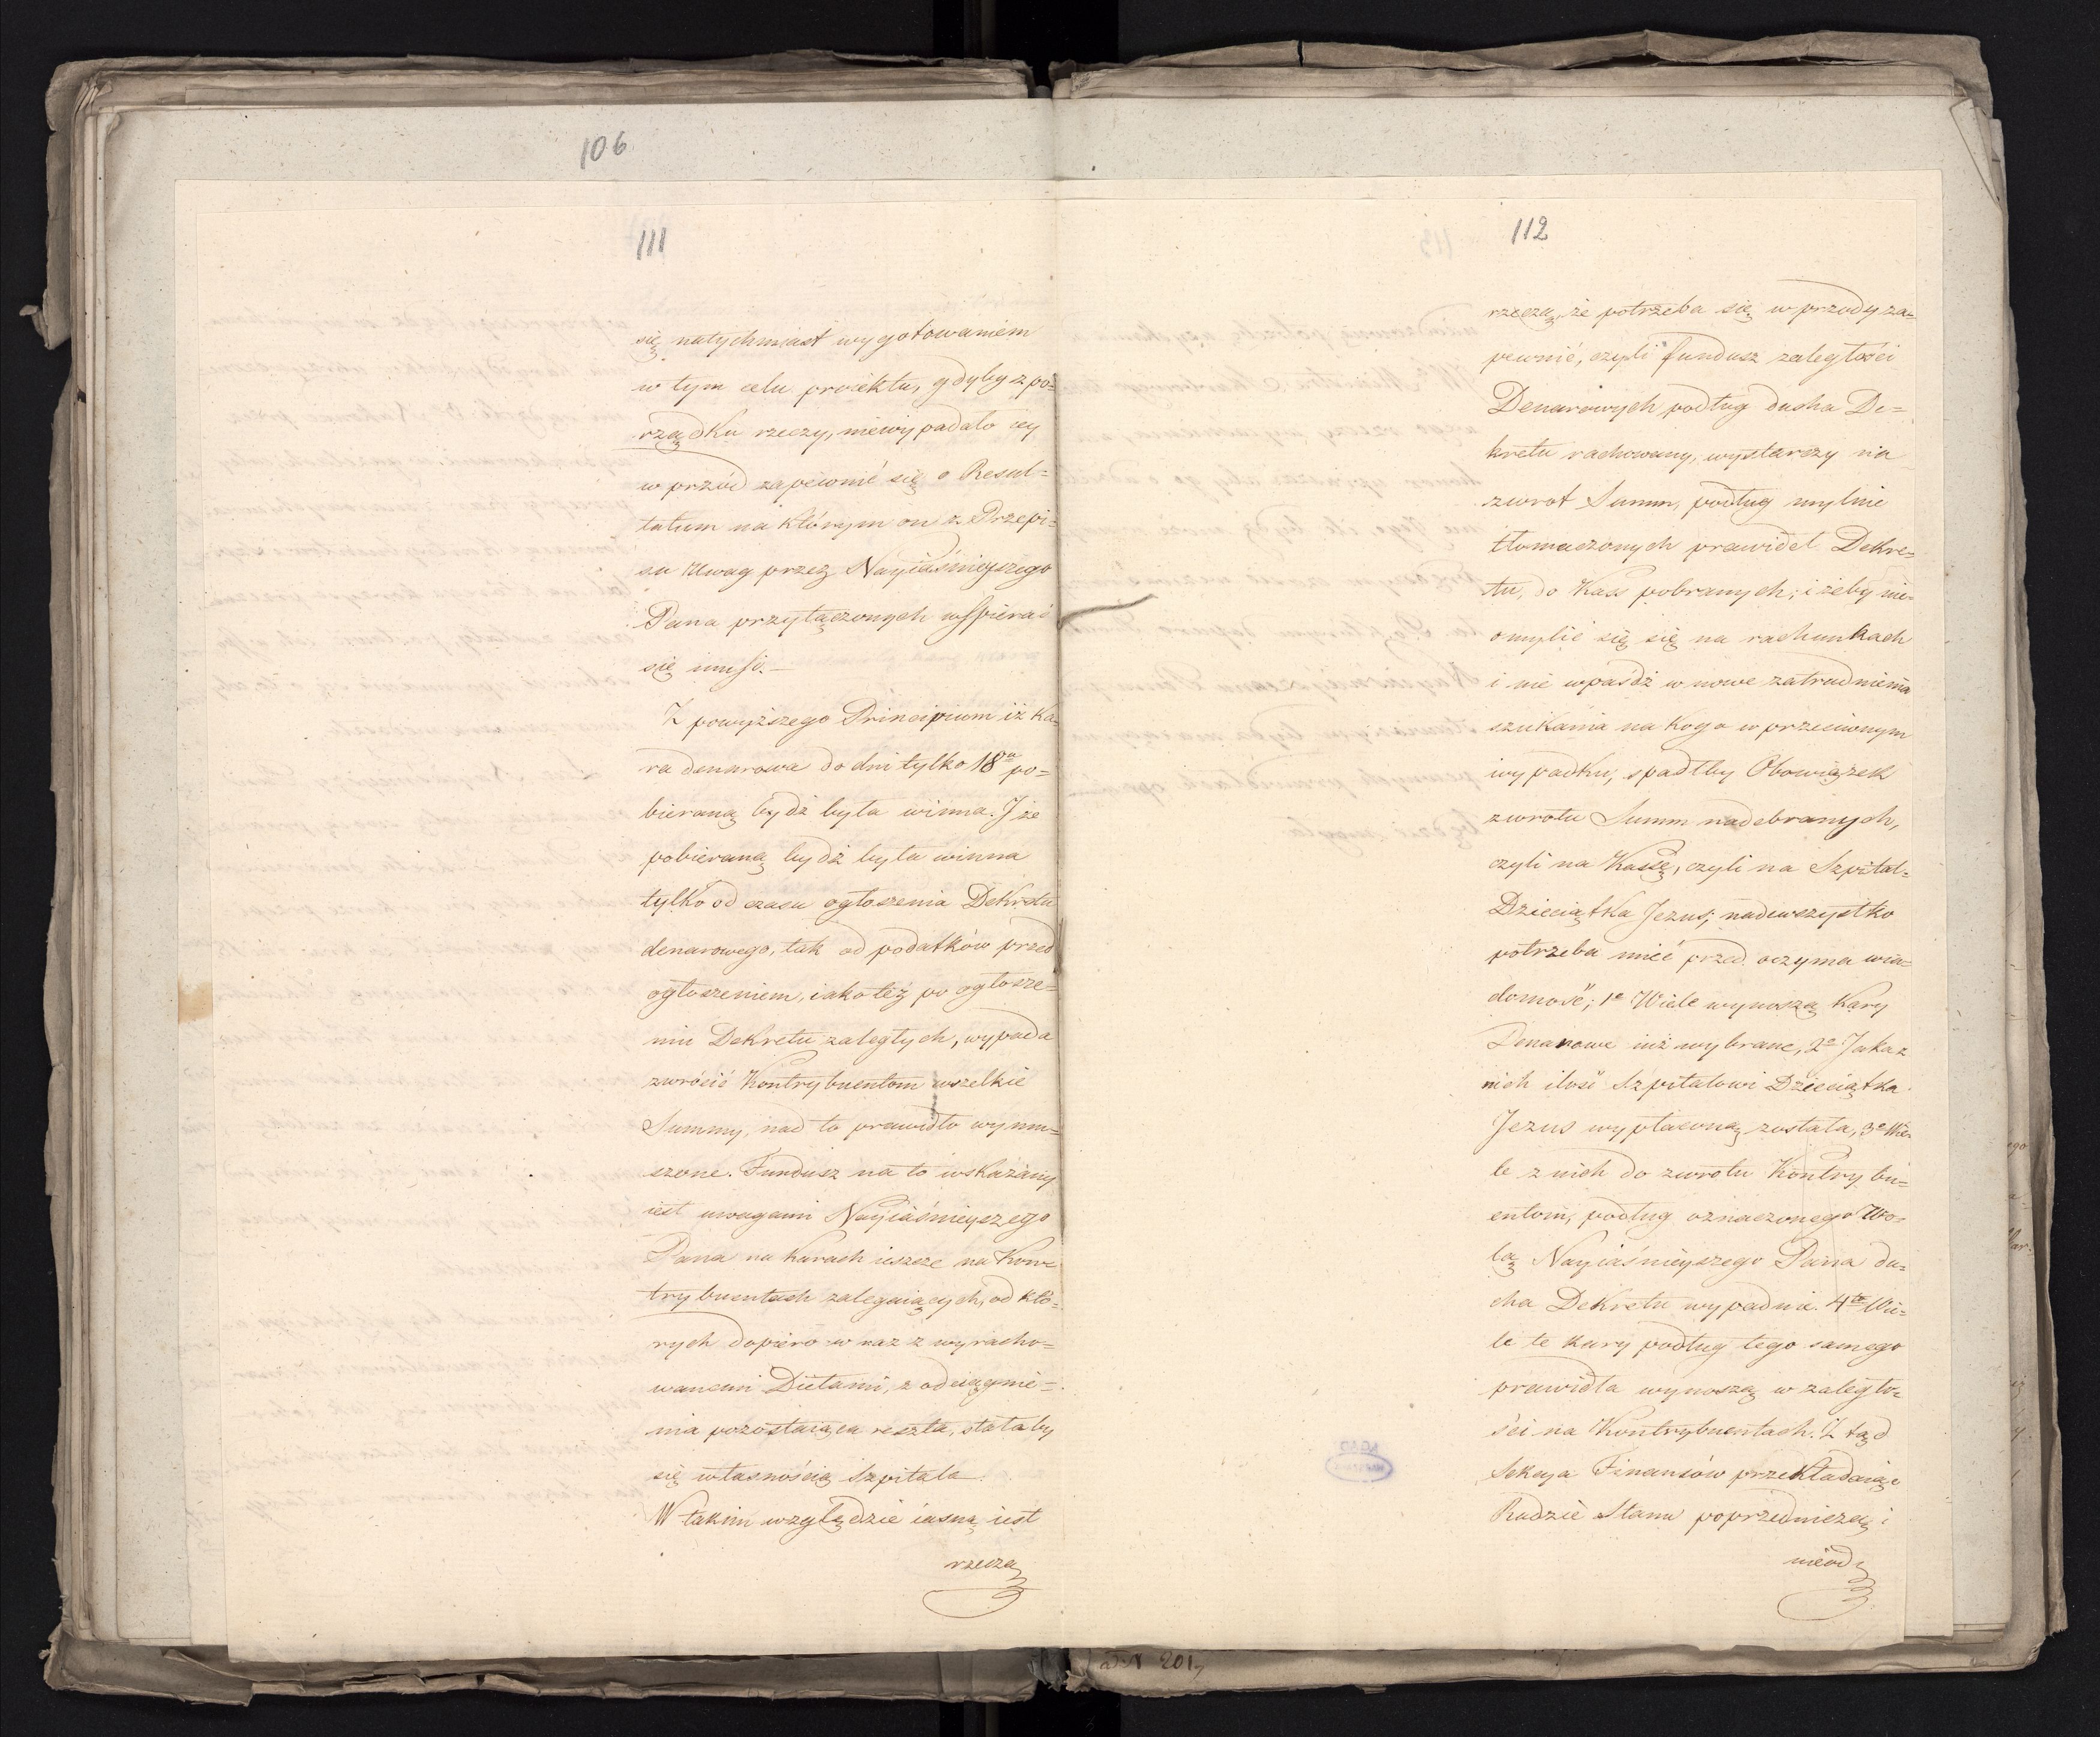 106
111
się natychmiast wygotowaniem
w tym celu proiektu, gdyby z po=
rządku rzeczy, niewypadało iey
w przód zapewnić się o Resul=
tatum na którym on z Przepi=
su Uwag przez Nayiaśnieyszego
Pana przyłączonych wspierać
się musi.—
Z powyższego Principium iż Ka=
ra denarowa do dni tylko 18u po=
bieraną bydź była winna. I że
pobieraną bydź była winna
tylko od czasu ogłoszenia Dekretu
denarowego, tak od podatków przed
ogłoszeniem, iako też po ogłosze=
niu Dekretu zaległych, wypada
zwrócić Kontrybuentom wszelkie
Summy, nad to prawidło wymu=
szone. Fundusz na to wskazany
iest uwagami Nayiaśnieyszego
Pana na karach ieszcze na Kon=
trybuentach zalegaiących, od któ=
rych dopiero w raz z wyracho=
wanemi Dietami, z odciągnie=
nia pozostaiąca reszta, stałaby
się własnością Szpitala.
W takim względzie iasną iest
rzeczą
112
rzeczą, że potrzeba się w przody za=
pewnić, czyli fundusz zaległości
Denarowych podług ducha De=
kretu rachowany, wystarczy na
zwrot Summ, podług mylnie
tłomaczonych prawideł Dekre=
tu, do Kass pobranych; i żeby nie=
omylić się się na rachunkach
i nie wpaśdź w nowe zatrudnienia
szukania na kogo w przeciwnym
wypadku, spadłby Obowiązek
zwrotu Summ nadebranych,
czyli na Kassę, czyli na Szpital=
Dzieciątka Jezus; nadewszystko
potrzeba mieć przed oczyma wia=
domość; 1e Wiele wynoszą Kary
Denarowe iuż wybrane, 2e Jaka z
nich ilość Szpitalowi Dzieciątka
Jezus wypłaconą została, 3e Wie=
le z nich do zwrotu Kontrybu=
entom, podług oznaczonego Wo=
lą Nayiaśnieyszego Pana du=
cha Dekretu wypadnie. 4te Wie=
le te kary podług tego samego
prawidła wynoszą w zaległo=
ści na Kontrybuentach. Z tąd
Sekcya Finansów przekładaiąc
Radzie Stanu poprzedniczą i
nieod
ad N 201